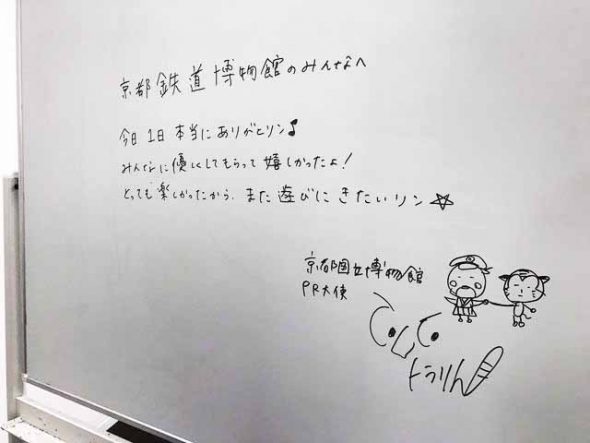 京都鉄道博物館のみんなへ
今日1日本当にありがとリン♪
みんなに優しくしてもらって嬉しかったよ！
とっても楽しかったから、また遊びにきたいリン☆
京都国立博物館
PR大使
トラりん